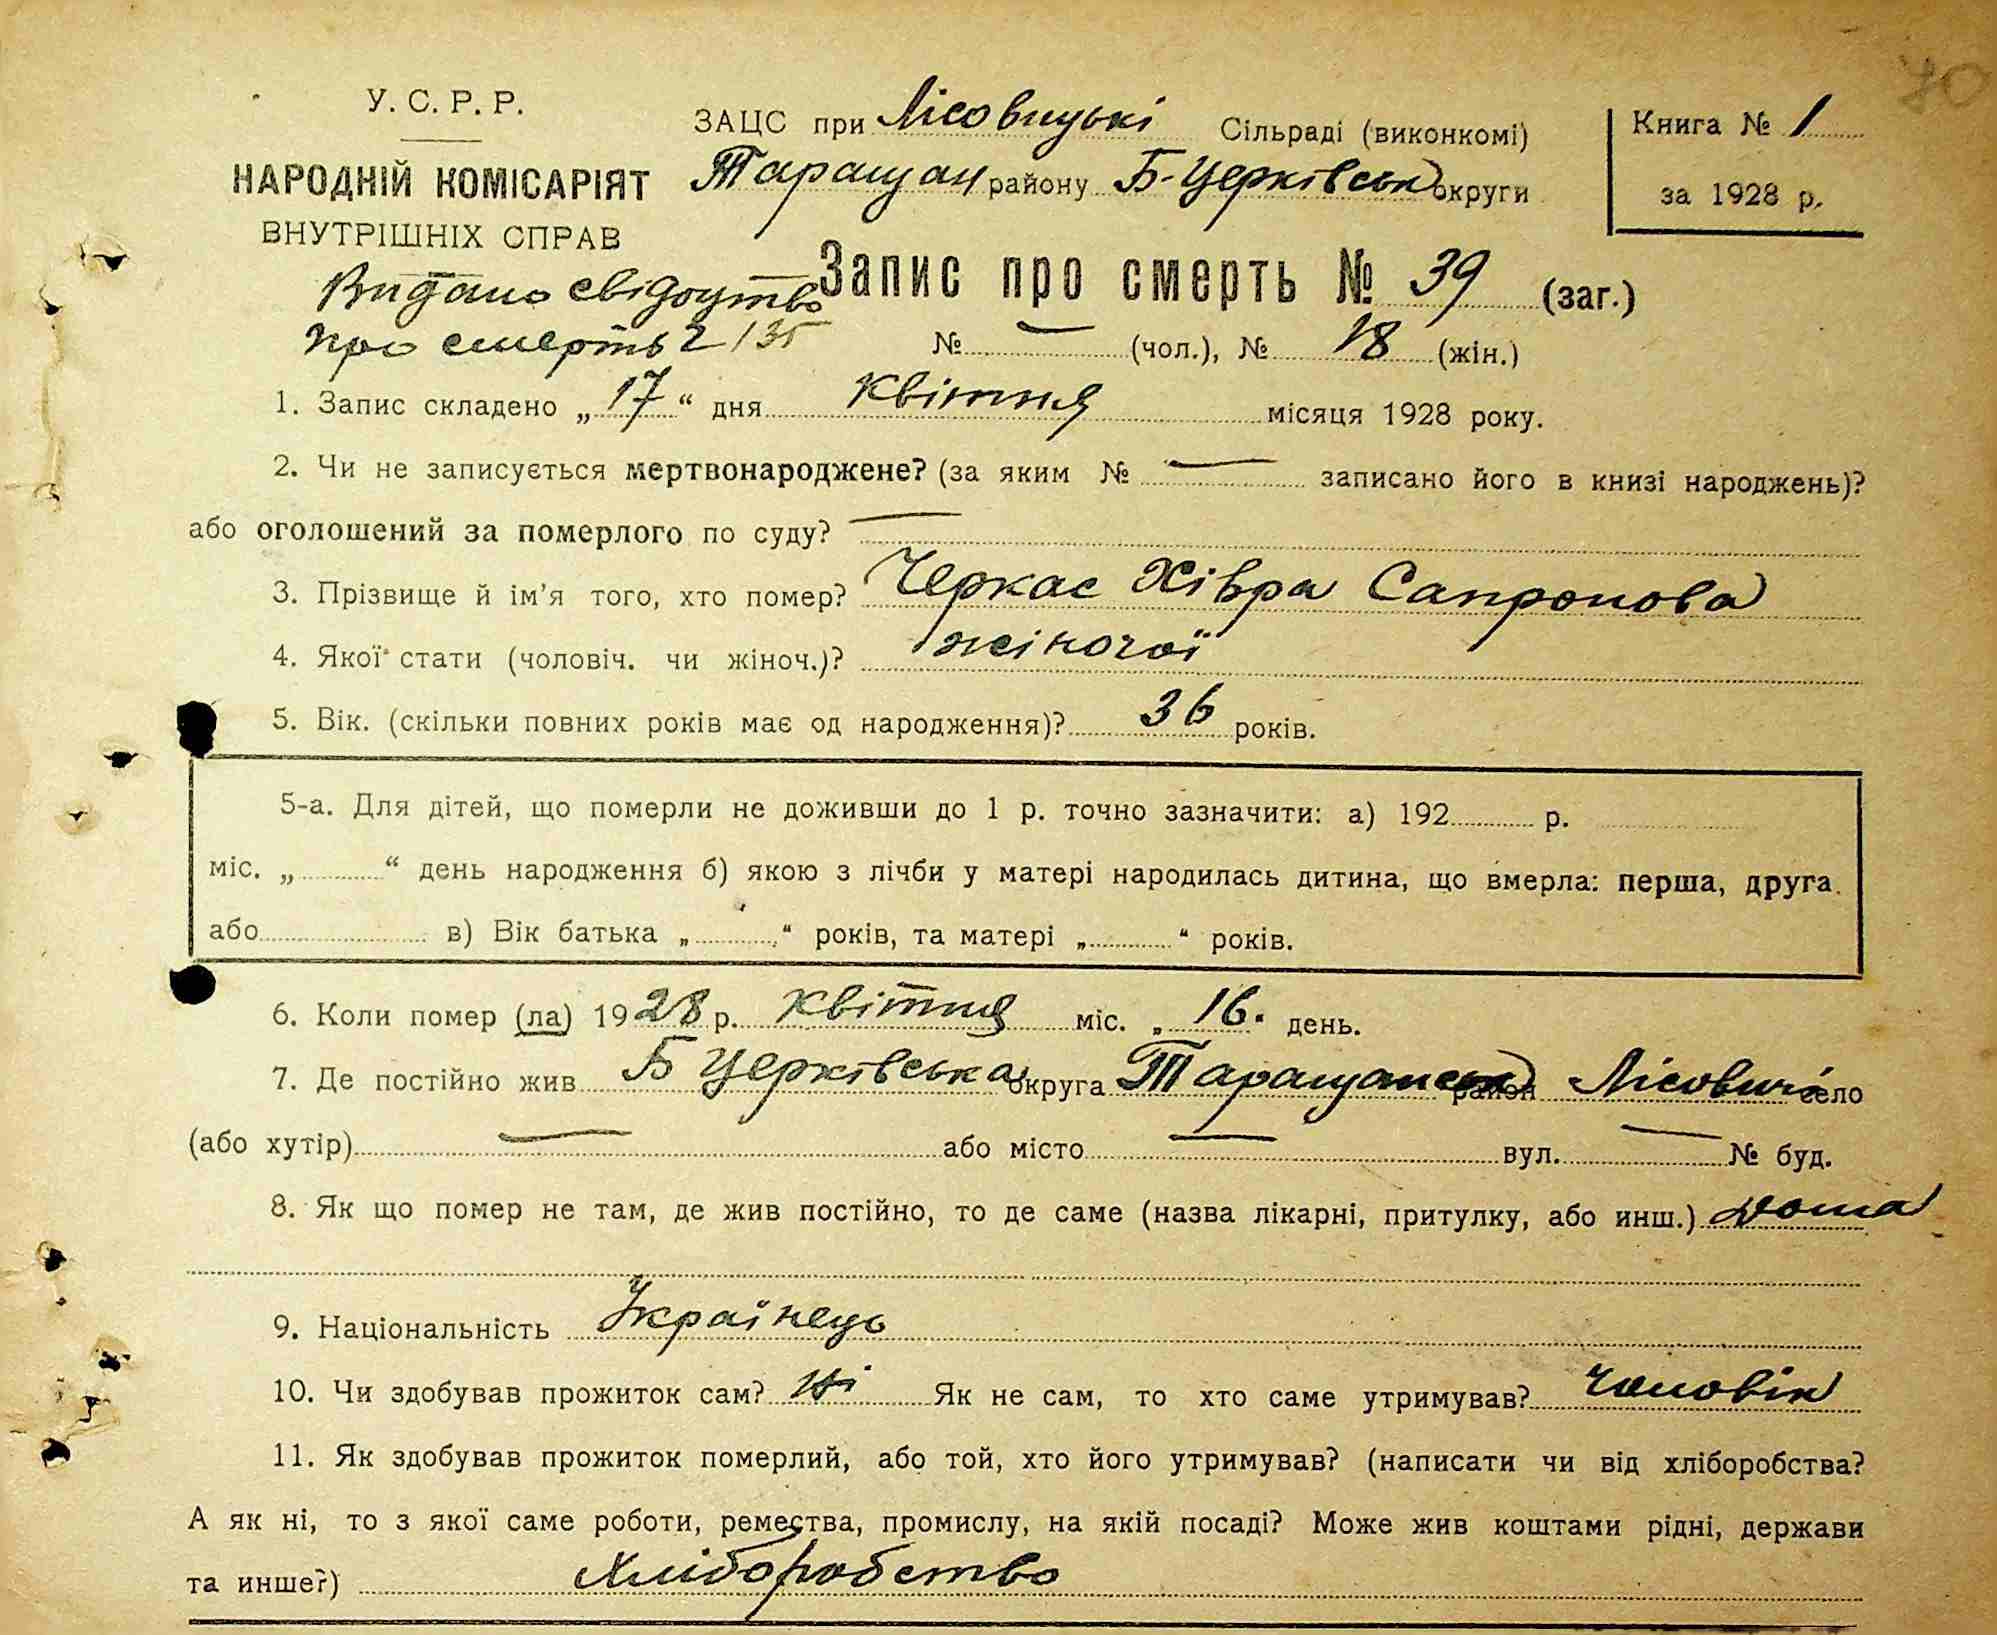 70
У. С. Р. Р.
НАРОДНІЙ КОМІСАРІЯТ
ВНУТРІШНІХ СПРАВ
ЗАЦС при Лісовицькі Сільраді (виконкомі)
Таращан району Б-Церківськ округи
Книга № 1
за 1928 р.
Видано свідоцтво
про смерть 2/35
Запис про смерть № 39 (заг.)
№ — (чол.), № 18 (жін.)
1. Запис складено „17“ дня квітня місяця 1928 року.
2. Чи не записується мертвонароджене? (за яким № — записано його в книзі народжень)?
або оголошений за померлого по суду? —
3. Прізвище й ім'я того, хто помер? Черкас Хівра Сапронова
4. Якої стати (чоловіч. чи жіноч.)? жіночої
5. Вік. (скільки повних років має од народження)? 36 років.
5-а. Для дітей, що померли не доживши до 1 р. точно зазначити: а) 192 р.
міс. „ “ день народження б) якою з лічби у матері народилась дитина, що вмерла: перша, друга
або в) Вік батька „ “ років, та матері „ “ років.
6. Коли помер (ла) 1928 р. квітня міс. „16“ день.
7. Де постійно жив Б Церківська округа Таращанськ район Лісовичі село
(або хутір) — або місто — вул. — № буд.
8. Як що помер не там, де жив постійно, то де саме (назва лікарні, притулку, або инш.) дома
9. Національність Українець
10. Чи здобував прожиток сам? Ні Як не сам, то хто саме утримував? чоловік
11. Як здобував прожиток померлий, або той, хто його утримував? (написати чи від хліборобства?
А як ні, то з якої саме роботи, ремества, промислу, на якій посаді? Може жив коштами рідні, держави
та инше?) Хліборобство